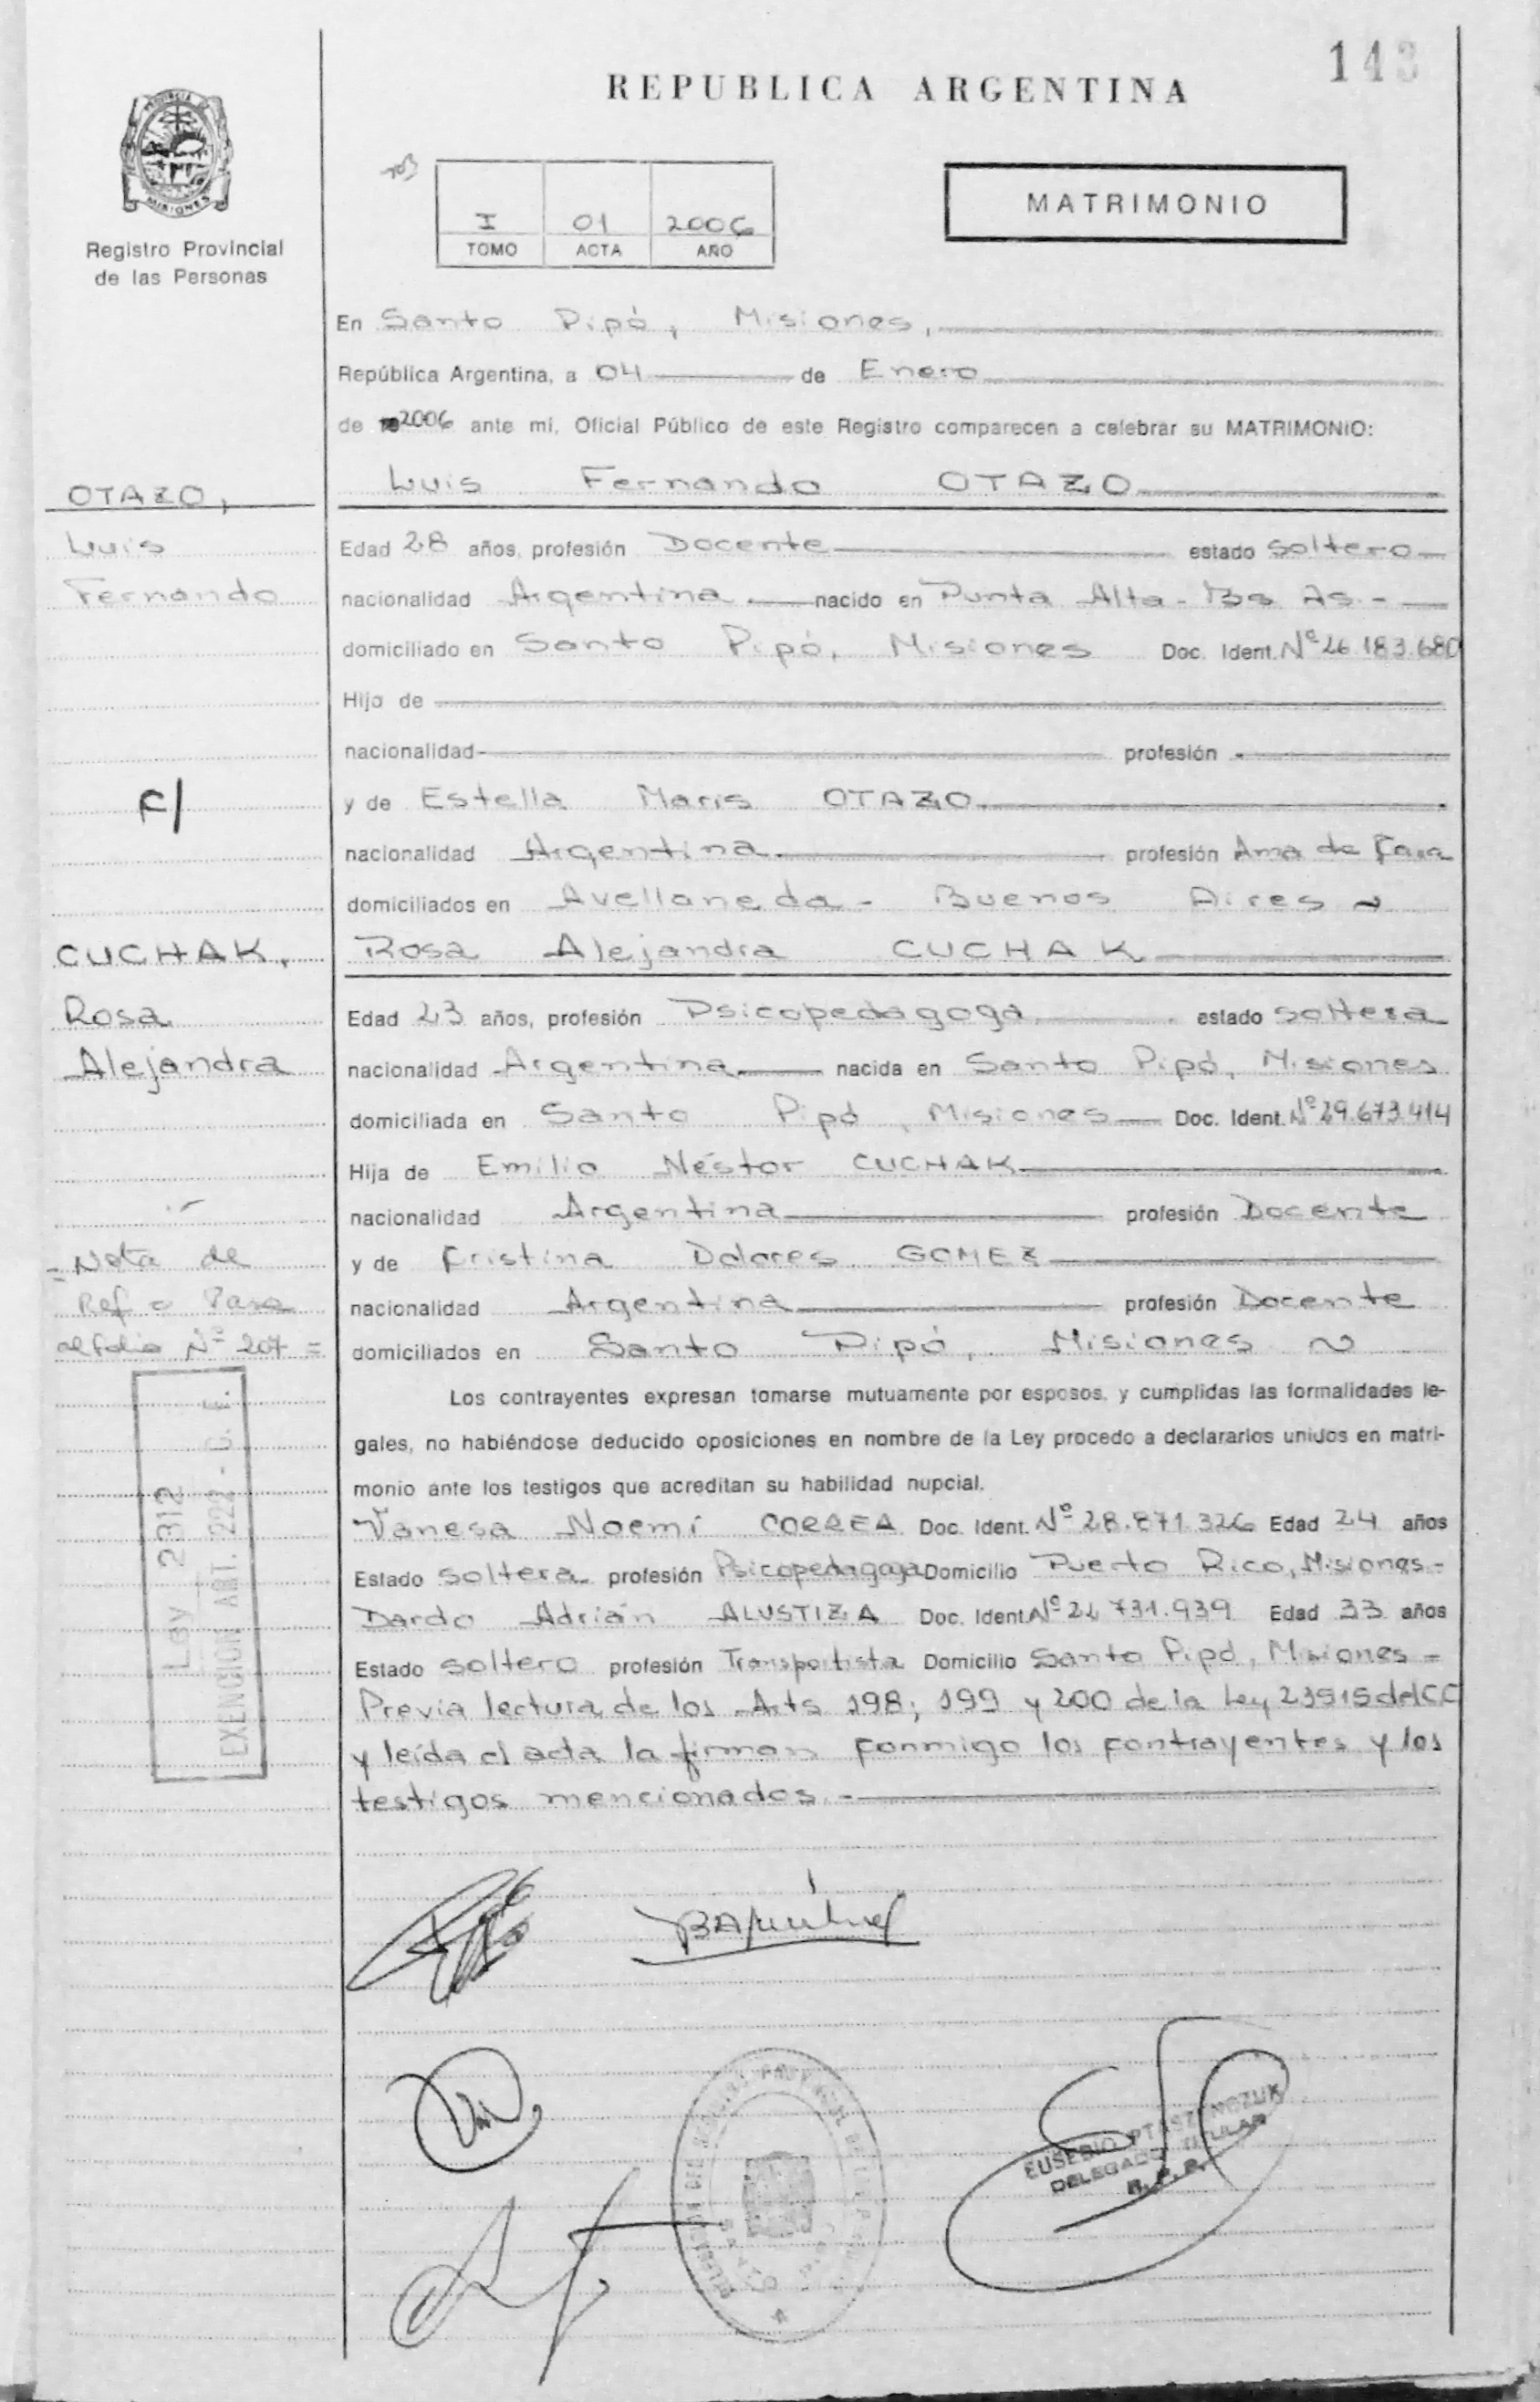 143
REPUBLICA ARGENTINA
PROVINCIA DE
MISIONES
Registro Provincial
de las Personas
I 01 2006
TOMO ACTA AÑO
MATRIMONIO
En Santo Pipó, Misiones,
República Argentina, a 04 de Enero
de 2006 ante mi, Oficial Público de este Registro comparecen a celebrar su MATRIMONIO:
OTAZO,
Luis
Fernando
Luis Fernando OTAZO
Edad 28 años, profesión Docente estado soltero
nacionalidad Argentina nacido en Punta Alta - Bs As -
domiciliado en Santo Pipó, Misiones Doc. Ident. Nº 26.183.680
Hijo de
nacionalidad profesión
y de Estella Maris OTAZO
nacionalidad Argentina profesión Ama de Casa
domiciliados en Avellaneda - Buenos Aires
c/
CUCHAK,
Rosa
Alejandra
Rosa Alejandra CUCHAK
Edad 23 años, profesión Psicopedagoga estado soltera
nacionalidad Argentina nacida en Santo Pipó, Misiones
domiciliada en Santo Pipó, Misiones Doc. Ident. Nº 29.673.414
Hija de Emilio Néstor CUCHAK
nacionalidad Argentina profesión Docente
y de Cristina Dolores GOMEZ
nacionalidad Argentina profesión Docente
domiciliados en Santo Pipó, Misiones
= Nota de
Ref = Pasa
al folio Nº 207 =
Los contrayentes expresan tomarse mutuamente por esposos, y cumplidas las formalidades le-
gales, no habiéndose deducido oposiciones en nombre de la Ley procedo a declararlos unidos en matri-
monio ante los testigos que acreditan su habilidad nupcial.
Vanesa Noemí CORREA Doc. Ident. Nº 28.871.326 Edad 24 años
Estado soltera profesión Psicopedagoga Domicilio Puerto Rico, Misiones -
Dardo Adrián ALUSTIZA Doc. Ident. Nº 24.731.939 Edad 33 años
Estado soltero profesión Transportista Domicilio Santo Pipó, Misiones =
Previa lectura de los Arts 198; 199 y 200 de la Ley 23515 del CC
y leída el acta la firman conmigo los contrayentes y los
testigos mencionados. -
Ley 2312
EXENCION ART. 222 - C.F.
EUSEBIO PTASZENCZUK
DELEGADO TITULAR
R. P. P.